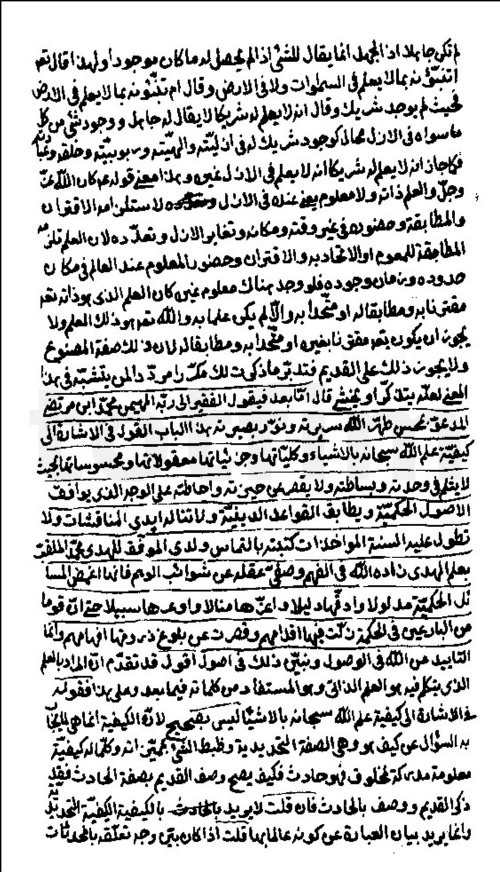 لم تكن جاهلا اذ الجهل انما يقال للشئ اذا لم يحصل له ما كان موجودا ولهذا قال تعه
اتنبئونه بما لا يعلم في السموات ولا في الارض وقال ام تنبئونه بما لا يعلم في الارض
فحيث لم يوجد شريك وقال انه لا يعلم له شريكا لا يقال له جاهل ووجود شئ من كل
ما سواه في الازل محال كوجود شريك له في ازليته والهيته وربوبيته وخلقه
فكما جاز انه لا يعلم له شريكا انه لا يعلم في الازل غيره وهذا معنى قوله عم كان الله عز
وجل والعلم ذاته ولا معلوم يعني عنده في الازل لاستلزامه الاقتران
والمطابقة وحضوره في غير وقته ومكانه وتغاير الازل وتعدده لان العلم
المطابقة للمعلوم او الاتحاد به والاقتران وحضور المعلوم عند العالم في مكان
حدوده وزمان وجوده فلو وجد هناك معلوم غيره كان العلم الذي هو ذاته تعه
مقترنا به ومطابقا له او متحدا به والا لم يكن علما به والله تعه هو ذلك العلم ولا
يجوز ان يكون تعه مقترنا بغيره او متحدا به ومطابقا له لان ذلك صفة المصنوع
ولا يجوز ذلك على القديم فتدبر ما ذكرت لك مكررا مرددا لمن يتشبه في هذا
المعنى لعله يتذكر او يخشى قال اما بعد فيقول الفقير الى ربه المهيمن محمد ابن مرتضى
المدعو بمحسن طهر الله سريرته ونور بصيرته هذا الباب القول في الاشارة الى
كيفية علم الله سبحانه بالاشياء كلياتها وجزئياتها معقولاتها ومحسوساتها بحيث
لا يثلم في وحدته وبساطته ولا يقصر عن حيزته واحاطته على الوجه الذي يوافق
الاصول الحكمية ويطابق القواعد الدينية ولا تناله ايدي المناقشات ولا
تطول عليه السنة المؤاخذات كتبته بالتماس ولدي الموفق للهدى محمد الملقب
بعلم الهدى زاده الله في الفهم وصفى عقله عن شوائب الوهم فانها اغمض المسا
ئل الحكمية مدلولا وادقها دليلا واعزها منالا واوعدها سبيلا حتى ان قوما
من البارعين في الحكمة زلت فيها اقدامهم وقصرت عن بلوغ ذروتها افهامهم وانما
التاييد من الله في الوصول ونبين ذلك في اصول اقول قد تقدم ان المراد بالعلم
الذي يتكلم فيه هو العلم الذاتي وهو المستفاد من كلماته فيما بعد وعلى هذا فقوله
في الاشارة الى كيفية علم الله سبحانه بالاشياء ليس بصحيح لان الكيفية انما هي
به السؤال عن كيف هو وهي الصفة التحديدية وظبط الشئ وكلما له كيفية
معلومة مدركة مخلوق فهو حادث فكيف يصح وصف القديم بصفة الحادث فقد
ذكر القديم ووصف بالحادث فان قلت لا يريد بالكيفية الكيفية
وانما يريد بيان العبارة عن كونه عالما بها قلت اذا كان بين وجه تعلقه بالمحدثات